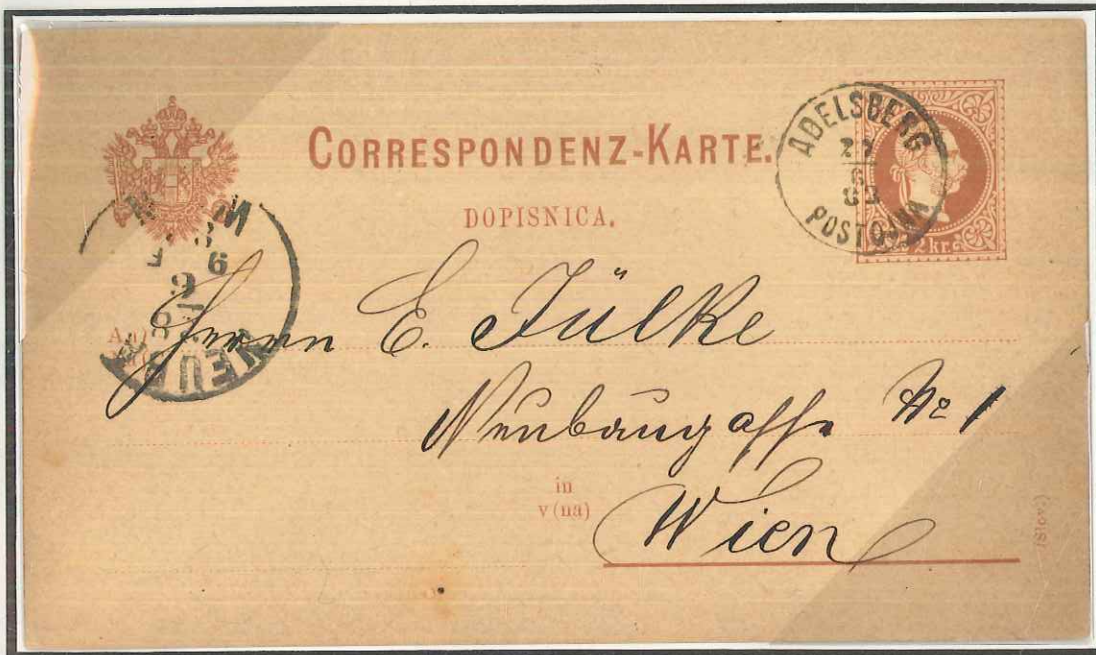 CORRESPONDENZ-KARTE.
DOPISNICA.
ADELSBERG
6
POSTOJNA
2 kr.
Herrn E. Jülke
Neubaugasse No 1
in
v(na)
Wien
(Slov.)